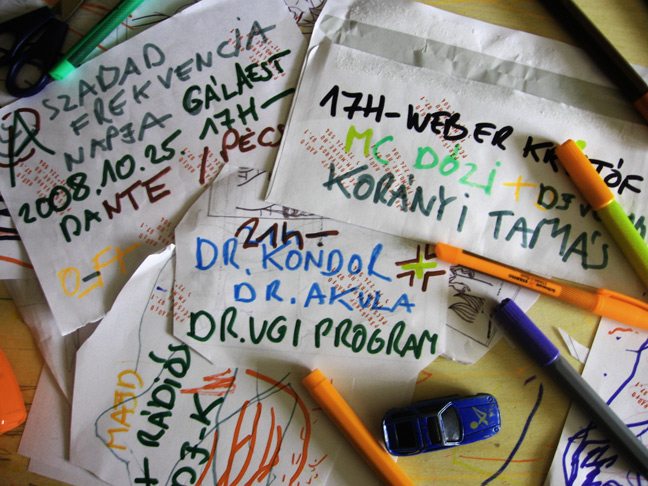 SZADAD
FREKVENCIA
NAPJA GÁLAEST
2008.10.25 17H-
DANTE / PÉCS
0.-Ft
17H-WEBER KRISTÓF
MC DÓZI + DJ
KORÁNYI TAMÁS
21h-
DR. KONDOR +
DR. AKULA
DR.VGI PROGRAM
MAJD
+ RÁDIÓS
DJ-K